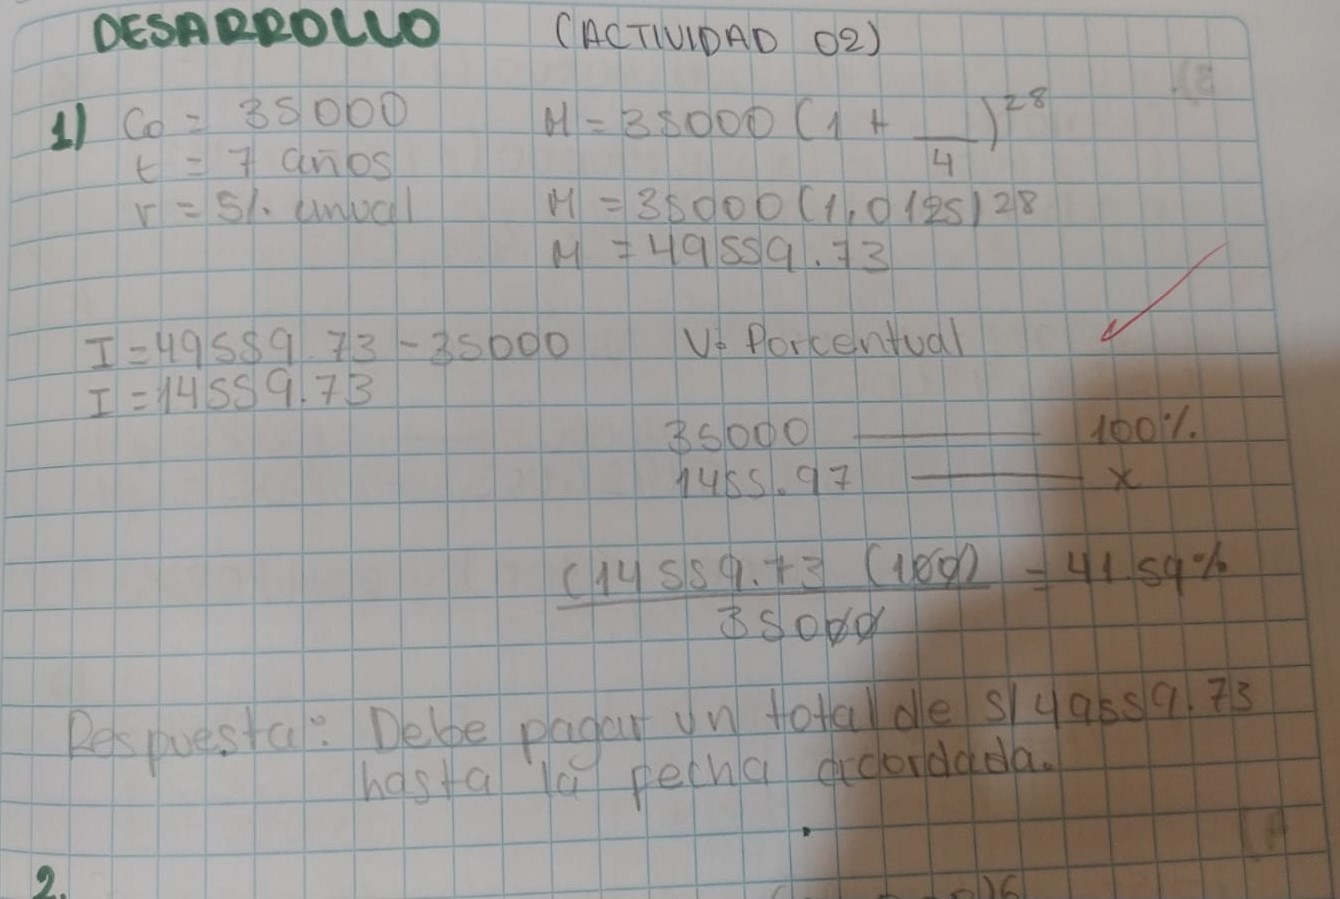 DESARROLLO (ACTIVIDAD 02)
1) Co = 35000 M = 35000 (1 + __/4)^28
t = 7 años
r = 5%. anual M = 35000 (1,0125)28
M = 49559.73
I = 49559.73 - 35000 V. Porcentual
I = 14559.73
35000 —— 100%.
1455.97 —— x
(14559.73 (100) = 41.59%
35000
Respuesta: Debe pagar un total de S/49559.73
hasta la fecha acordada.
2.